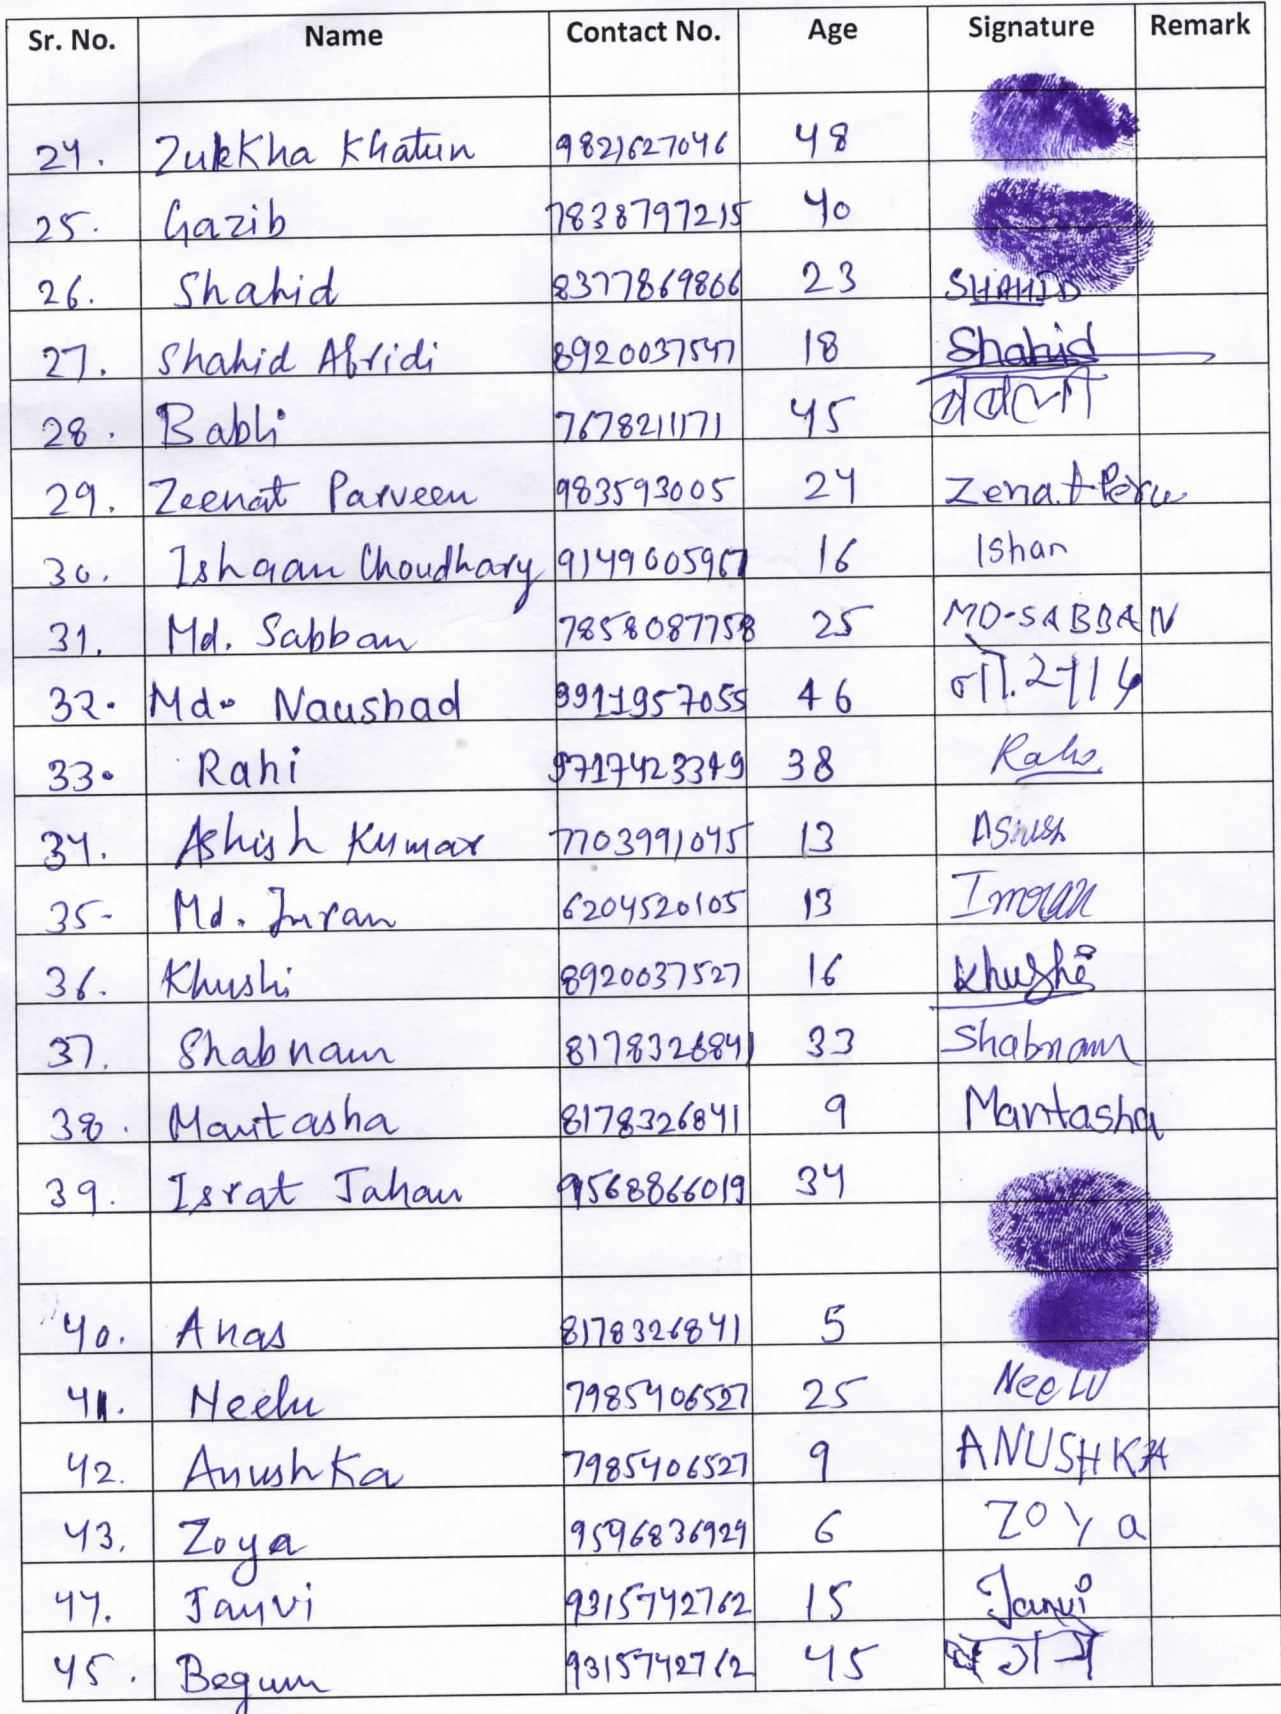 Sr. No. Name Contact No. Age Signature Remark
24. Zukkha Khatun 9821627046 48
25. Gazib 7838797215 40
26. Shahid 8377869866 23 SHAHID
27. Shahid Afridi 8920037547 18 Shahid
28. Babli 7678211171 45 बबली
29. Zeenat Parveen 983593005 24 Zenat
30. Ishaan Choudhary 9149605967 16 Ishan
31. Md. Sabban 7858087758 25 MD-SABBAN
32. Md. Naushad 9911957055 46
33. Rahi 9717423349 38
34. Ashish Kumar 7703991045 13
35- Md. Imran 6204520105 13 Imran
36. Khushi 8920037527 16 Khushi
37. Shabnam 8178326841 33 Shabnam
38. Mantasha 8178326841 9 Mantasha
39. Israt Jahan 9568866019 34
40. Anas 8178326841 5
41. Neelu 7985406527 25 Neelu
42. Anushka 7985406527 9 ANUSHKA
43. Zoya 9596836929 6 Zoya
44. Janvi 9315742762 15 Janvi
45. Begum 9315742762 45